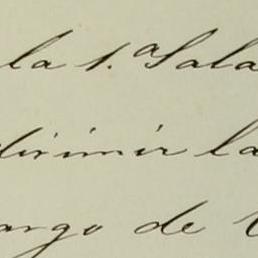 la 1.ª Sala
dirimir la
argo de